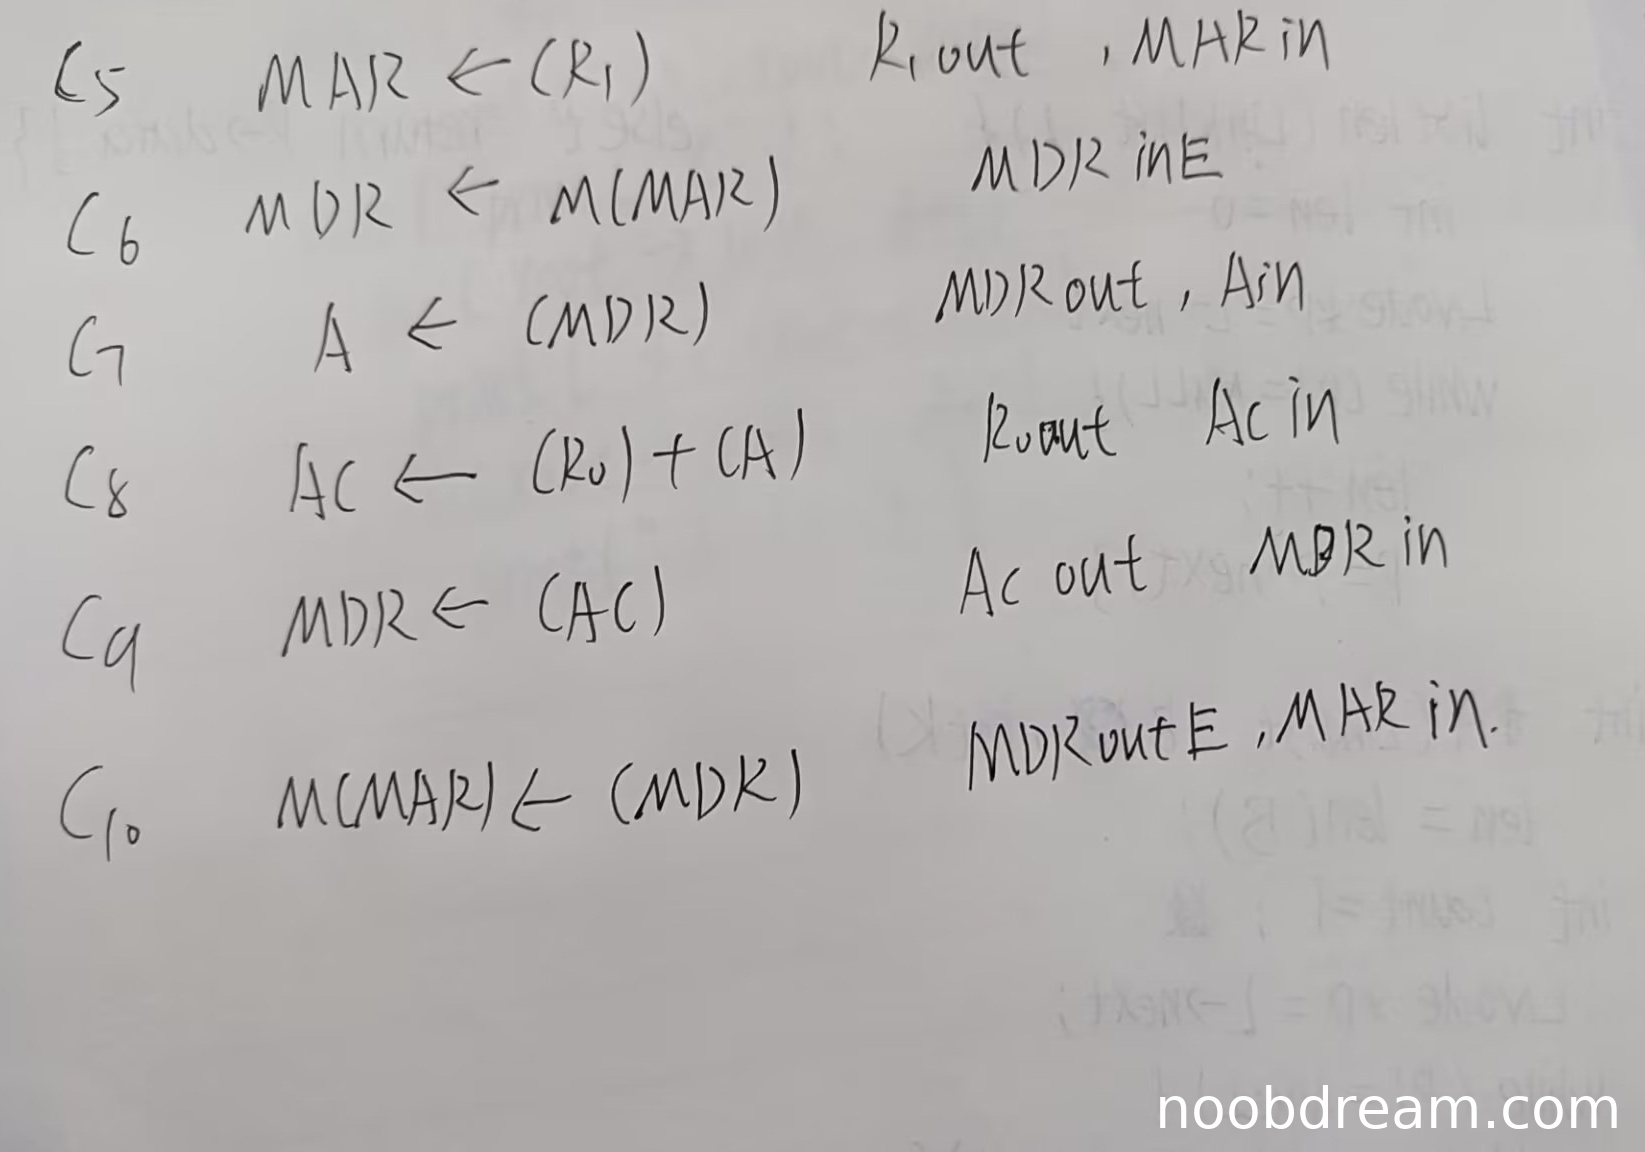 C5 MAR ← (R1) R1out , MARin
C6 MDR ← M(MAR) MDRinE
C7 A ← (MDR) MDRout , Ain
C8 AC ← (R0)+(A) R0out ACin
C9 MDR ← (AC) ACout MDRin
C10 M(MAR) ← (MDR) MDRoutE , MARin.
noobdream.com